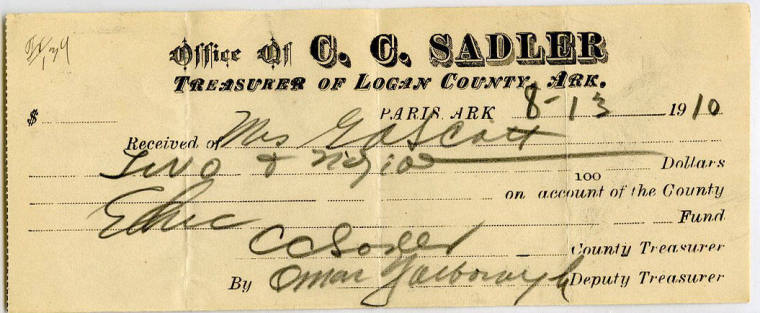 Office Of C. C. SADLER
TREASURER OF LOGAN COUNTY, ARK.
$ PARIS, ARK 8-13 1910
Received of Mrs Scott
Two & Dollars
100
on account of the County
Fund
C C Sadler County Treasurer
By Omar Yarborough Deputy Treasurer